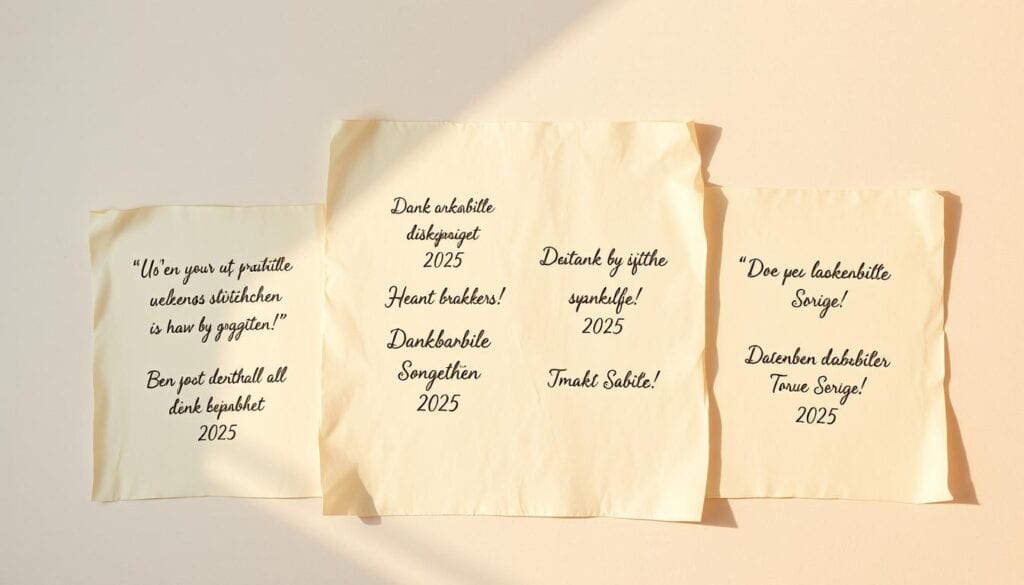 "Uo'en your ut prabitlle
uelkenos slivtehchen
is haw by goggiten!"
Ben jost derithall all
dënk bepabhet
2025
Dank arkabille
diskgnaiget
2025
Heant brakkers!
Dankbarbile
Songethën
2025
Deitank by ijtthe
synkulfe!
2025
Tmakt Sabite!
"Doe peu laokenbiltë
Sorige!
Dataenben dabubilër
Torue Serige!
2025